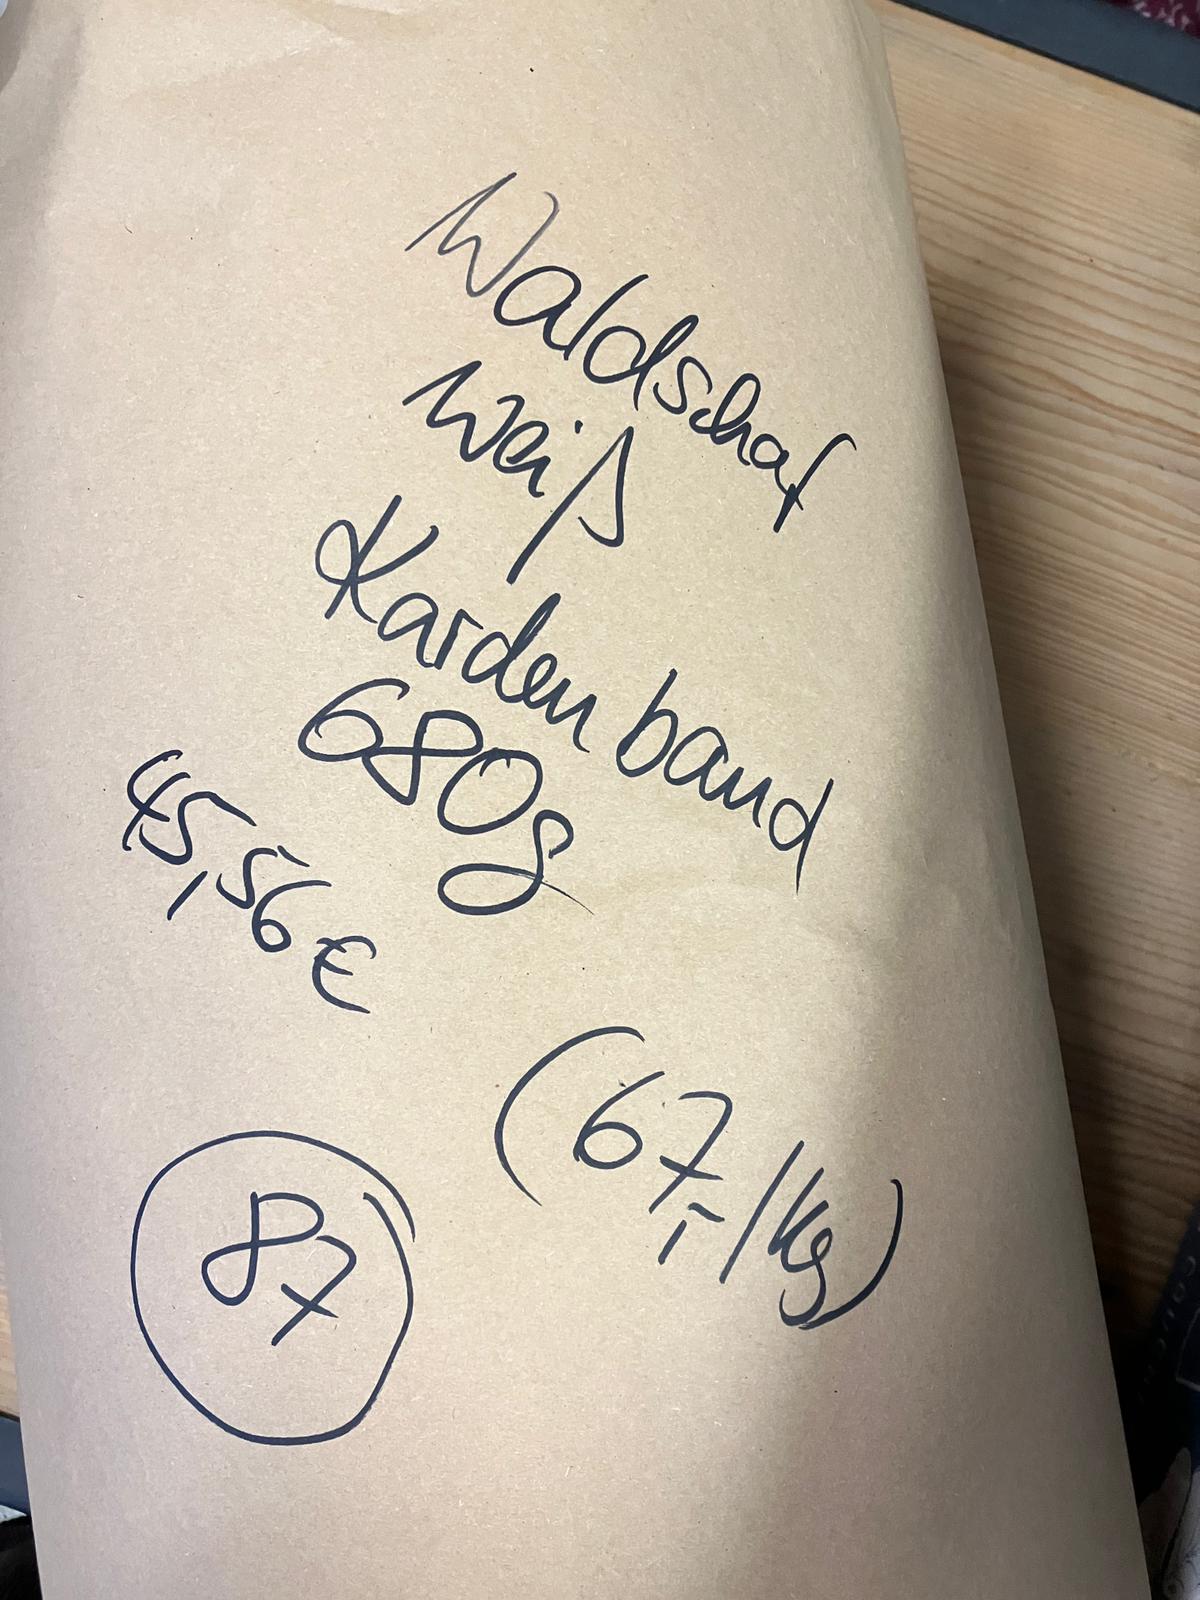 Waldschaf
weiß
Kardenband
680g
45,56 €
(67,-/kg)
87